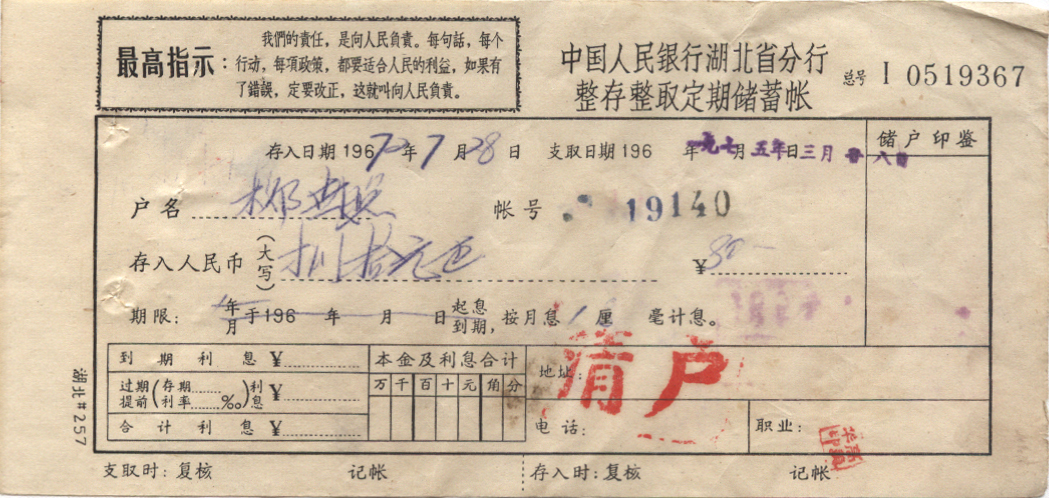 最高指示：
我們的責任，是向人民負責。每句話，每个
行动，每項政策，都要适合人民的利益，如果有
了錯誤，定要改正，这就叫向人民負責。
中国人民银行湖北省分行
整存整取定期储蓄帐
总号 I 0519367
存入日期 196 72年7月28日 支取日期 196 年 月 日 一九七五年三月廿八日
储户印鉴
户名 柳 帐号 19140
存入人民币(大写) 拾元正 ¥ 80-
期限： 年/月 于196 年 月 日 起息/到期，按月息 厘 毫计息。
到期利息 ¥
过期/提前 (存期/利率 ‰) 利息 ¥
合计利息 ¥
本金及利息合计
万 千 百 十 元 角 分
地址：
清户
电话：
职业：
支取时：复核 记帐 存入时：复核 记帐
湖北#257